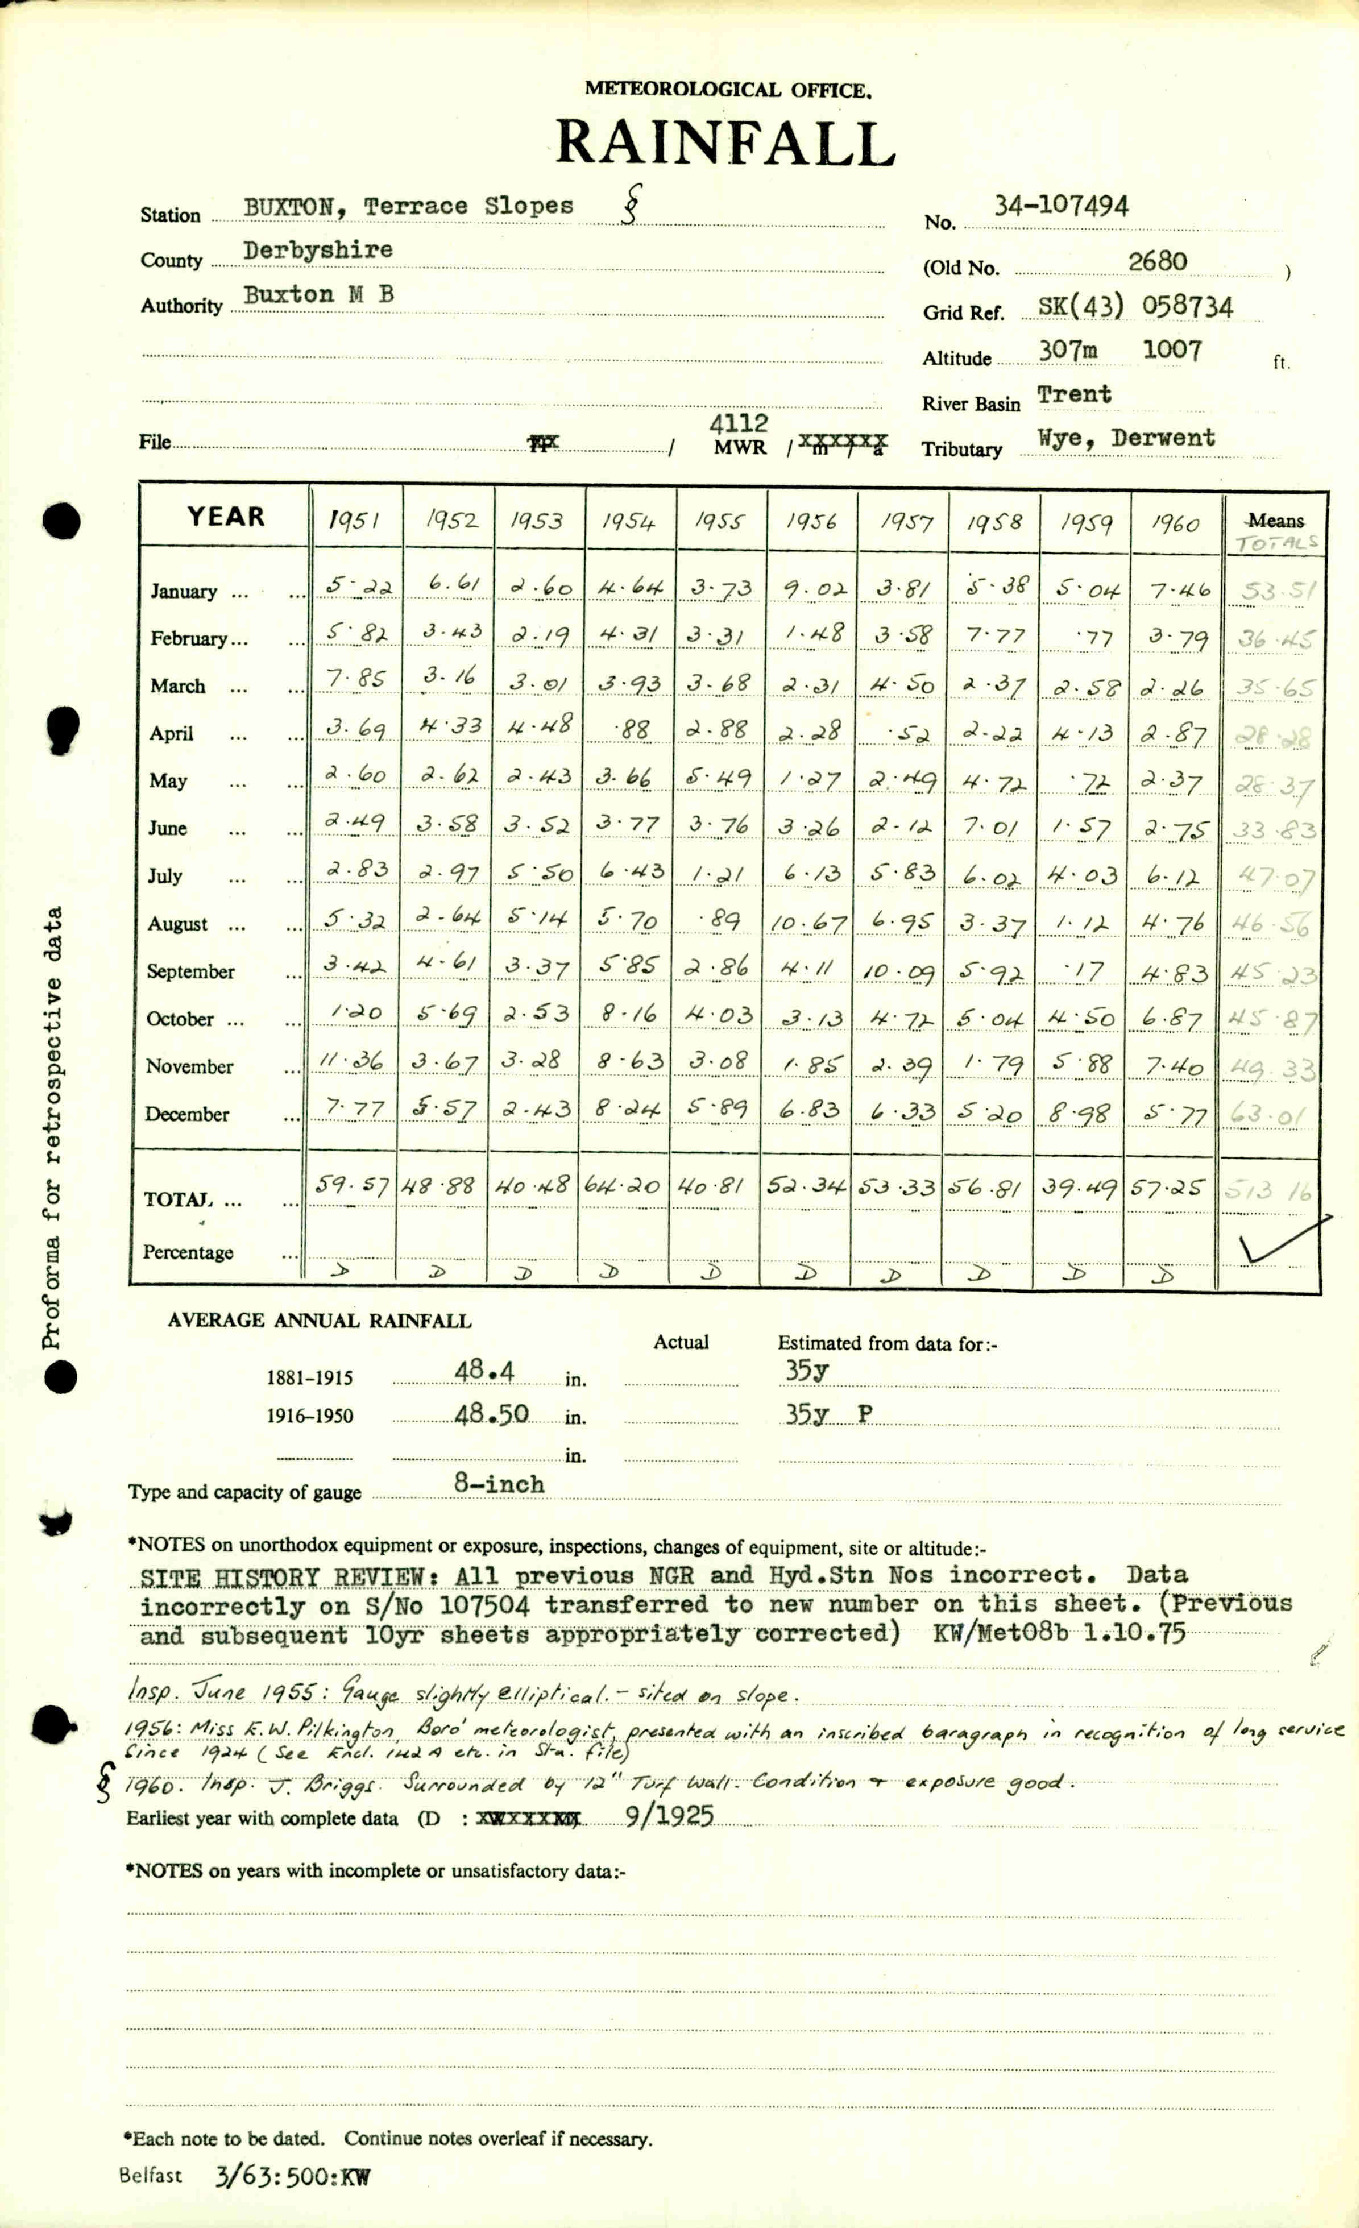 METEOROLOGICAL OFFICE.
RAINFALL
Station BUXTON, Terrace Slopes §
No. 34-107494
County Derbyshire
(Old No. 2680 )
Authority Buxton M B
Grid Ref. SK(43) 058734
Altitude 307m 1007 ft.
River Basin Trent
File / 4112 MWR /
Tributary Wye, Derwent
YEAR 1951 1952 1953 1954 1955 1956 1957 1958 1959 1960 Means TOTALS
January ... ... 5.22 6.61 2.60 4.64 3.73 9.02 3.81 5.38 5.04 7.46 53.51
February ... ... 5.82 3.43 2.19 4.31 3.31 1.48 3.58 7.77 .77 3.79 36.45
March ... ... 7.85 3.16 3.01 3.93 3.68 2.31 4.50 2.37 2.58 2.26 35.65
April ... ... 3.69 4.33 4.48 .88 2.88 2.28 .52 2.22 4.13 2.87 28.28
May ... ... 2.60 2.62 2.43 3.66 5.49 1.27 2.49 4.72 .72 2.37 28.37
June ... ... 2.49 3.58 3.52 3.77 3.76 3.26 2.12 7.01 1.57 2.75 33.83
July ... ... 2.83 2.97 5.50 6.43 1.21 6.13 5.83 6.02 4.03 6.12 47.07
August ... ... 5.32 2.64 5.14 5.70 .89 10.67 6.95 3.37 1.12 4.76 46.56
September ... 3.42 4.61 3.37 5.85 2.86 4.11 10.09 5.92 .17 4.83 45.23
October ... ... 1.20 5.69 2.53 8.16 4.03 3.13 4.72 5.04 4.50 6.87 45.87
November ... 11.36 3.67 3.28 8.63 3.08 1.85 2.39 1.79 5.88 7.40 49.33
December ... 7.77 5.57 2.43 8.24 5.89 6.83 6.33 5.20 8.98 5.77 63.01
TOTAL ... ... 59.57 48.88 40.48 64.20 40.81 52.34 53.33 56.81 39.49 57.25 513 16
Percentage ... D D D D D D D D D D ✓
Proforma for retrospective data
AVERAGE ANNUAL RAINFALL
Actual Estimated from data for:-
1881-1915 48.4 in. 35y
1916-1950 48.50 in. 35y P
in.
Type and capacity of gauge 8-inch
*NOTES on unorthodox equipment or exposure, inspections, changes of equipment, site or altitude:-
SITE HISTORY REVIEW: All previous NGR and Hyd.Stn Nos incorrect. Data
incorrectly on S/No 107504 transferred to new number on this sheet. (Previous
and subsequent 10yr sheets appropriately corrected) KW/MetO8b 1.10.75
Insp. June 1955: Gauge slightly elliptical. - sited on slope.
1956: Miss E.W. Pilkington, Boro' meteorologist, presented with an inscribed baragraph in recognition of long service
since 1924 (See Encl. 142A etc. in Sta. file)
§ 1960. Insp. J. Briggs. Surrounded by 12" Turf Wall. Condition + exposure good.
Earliest year with complete data (D : 9/1925
*NOTES on years with incomplete or unsatisfactory data:-
*Each note to be dated. Continue notes overleaf if necessary.
Belfast 3/63:500:KW